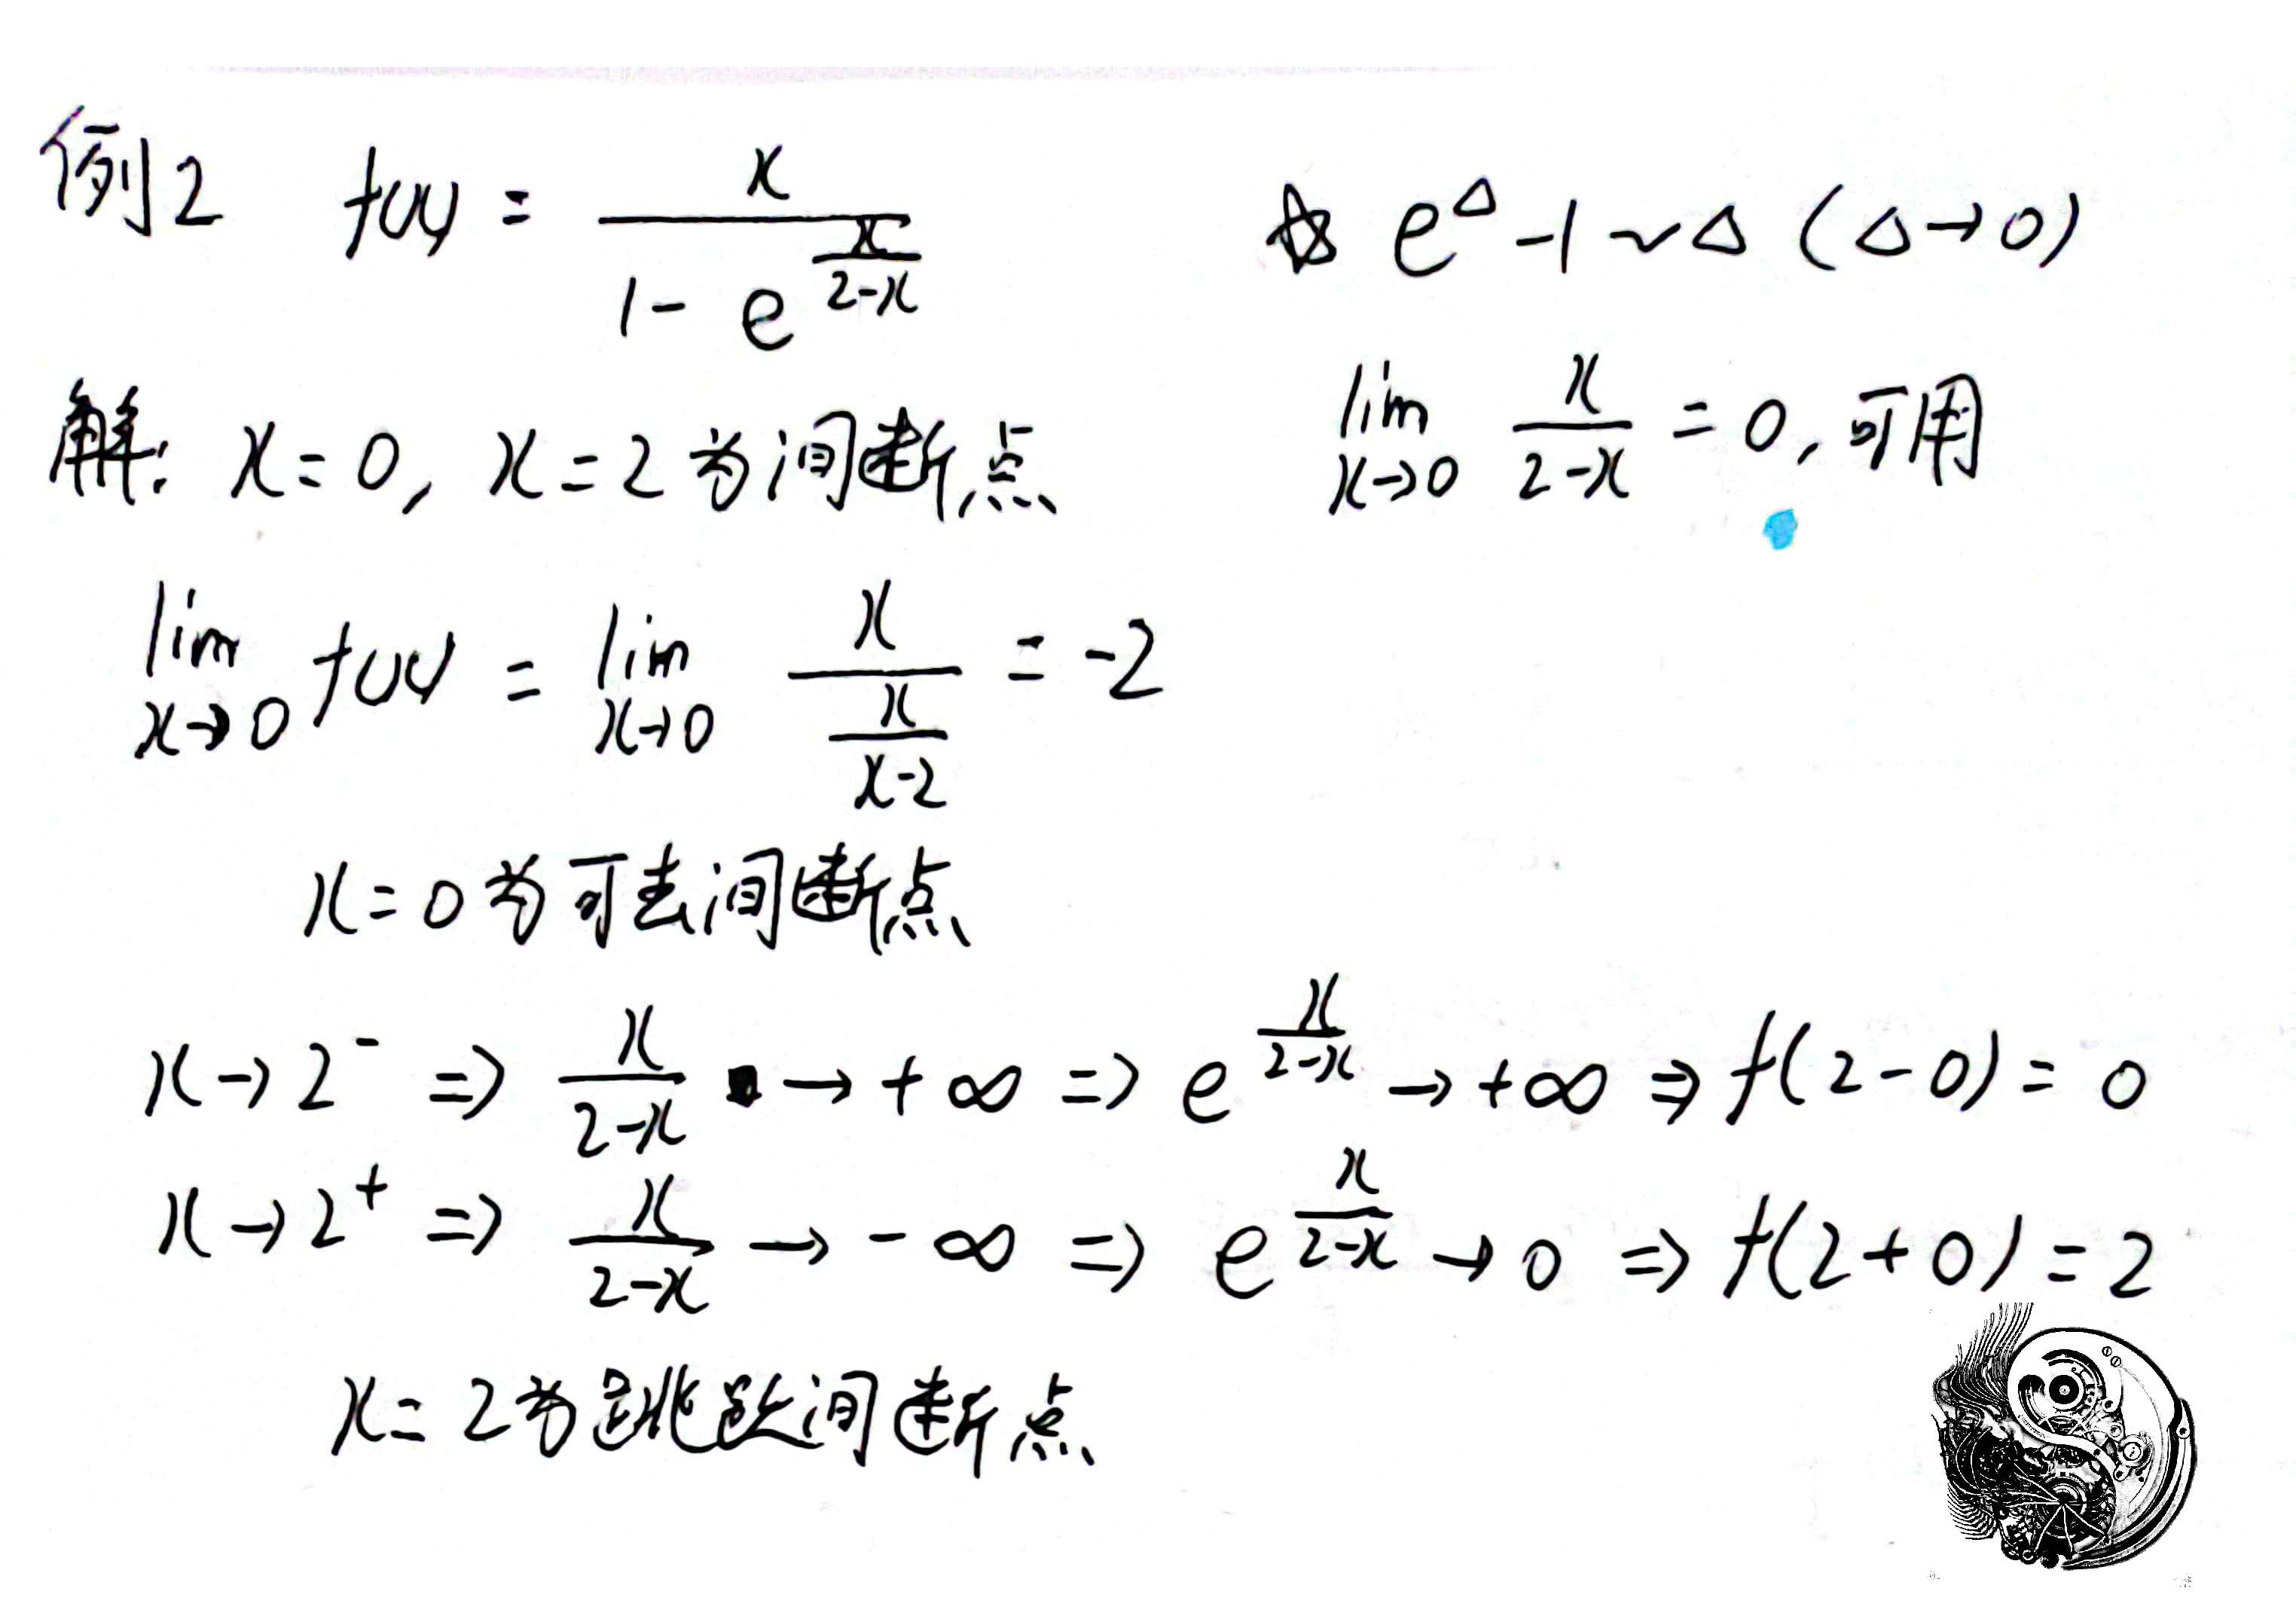 例2 f(x) = \frac{x}{1 - e^{\frac{x}{2-x}}}
☆ e^Δ - 1 ~ Δ (Δ→0)
解: x = 0, x = 2 为间断点
lim_{x→0} \frac{x}{2-x} = 0, 可用
lim_{x→0} f(x) = lim_{x→0} \frac{x}{\frac{x}{x-2}} = -2
x = 0 为可去间断点
x → 2^- ⇒ \frac{x}{2-x} → +∞ ⇒ e^{\frac{x}{2-x}} → +∞ ⇒ f(2-0) = 0
x → 2^+ ⇒ \frac{x}{2-x} → -∞ ⇒ e^{\frac{x}{2-x}} → 0 ⇒ f(2+0) = 2
x = 2 为跳跃间断点